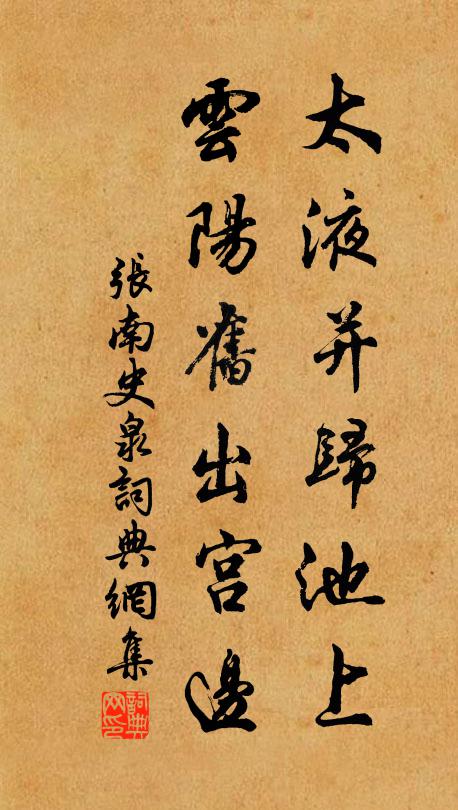 太液并歸池上
雲陽舊出宮邊
張南史泉詞典網集
詞典
网印